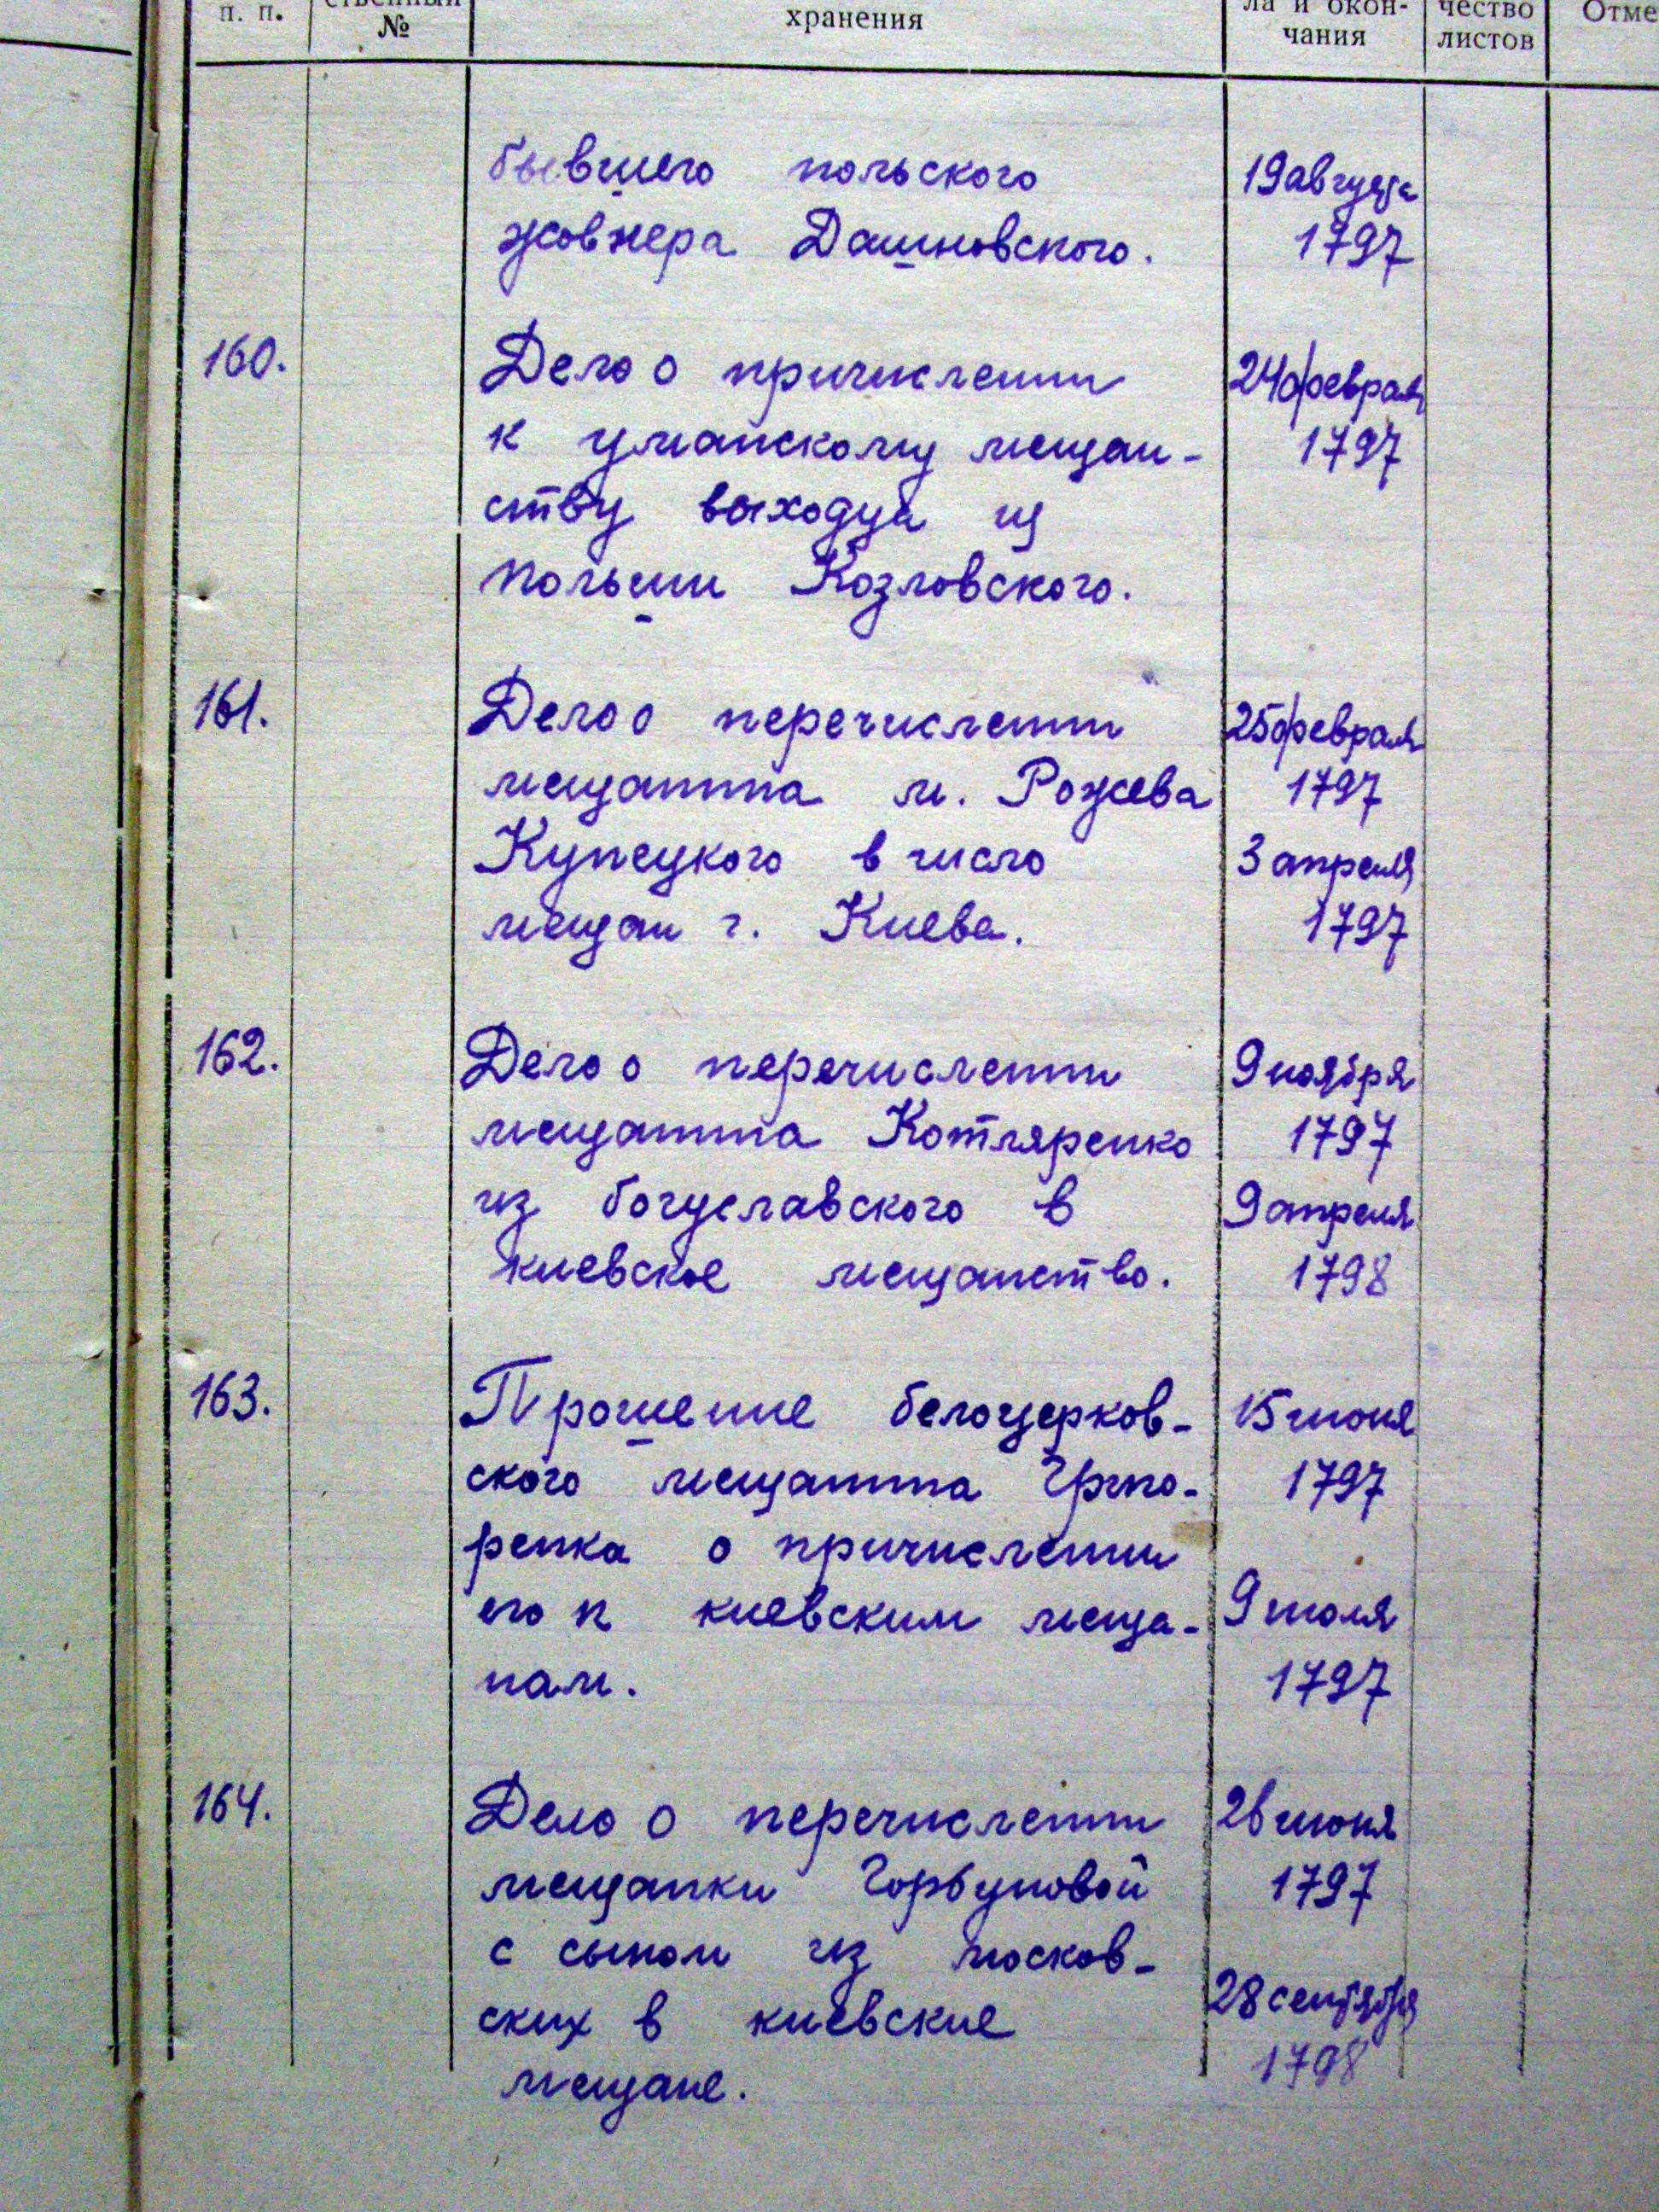 п. п.
ственный
№
хранения
ла и окон-
чания
чество
листов
Отме
бывшего польского
жовнера Дашновского.
19 августа
1797
160.
Дело о причислении
к уманскому мещан-
ству выходца из
Польши Козловского.
24 февраля
1797
161.
Дело о перечислении
мещанина м. Рожева
Купецкого в число
мещан г. Киева.
25 февраля
1797
3 апреля
1797
162.
Дело о перечислении
мещанина Котляренко
из богуславского в
киевское мещанство.
9 ноября
1797
9 апреля
1798
163.
Прошение белоцерков-
ского мещанина
ренка о причислении
его к киевским меща-
нам.
15 июня
1797
9 июля
1797
164.
Дело о перечислении
мещанки Горбуновой
с сыном из москов-
ских в киевские
мещане.
26 июня
1797
28 сентября
1798